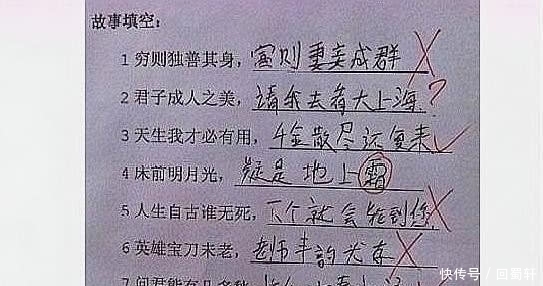 故事填空：
1 穷则独善其身，富则妻妾成群
2 君子成人之美，请我去看大上海?
3 天生我才必有用，千金散尽还复来
4 床前明月光，疑是地上霜
5 人生自古谁无死，下个就会轮到您
6 英雄宝刀未老，老师丰韵尤存
快传号/